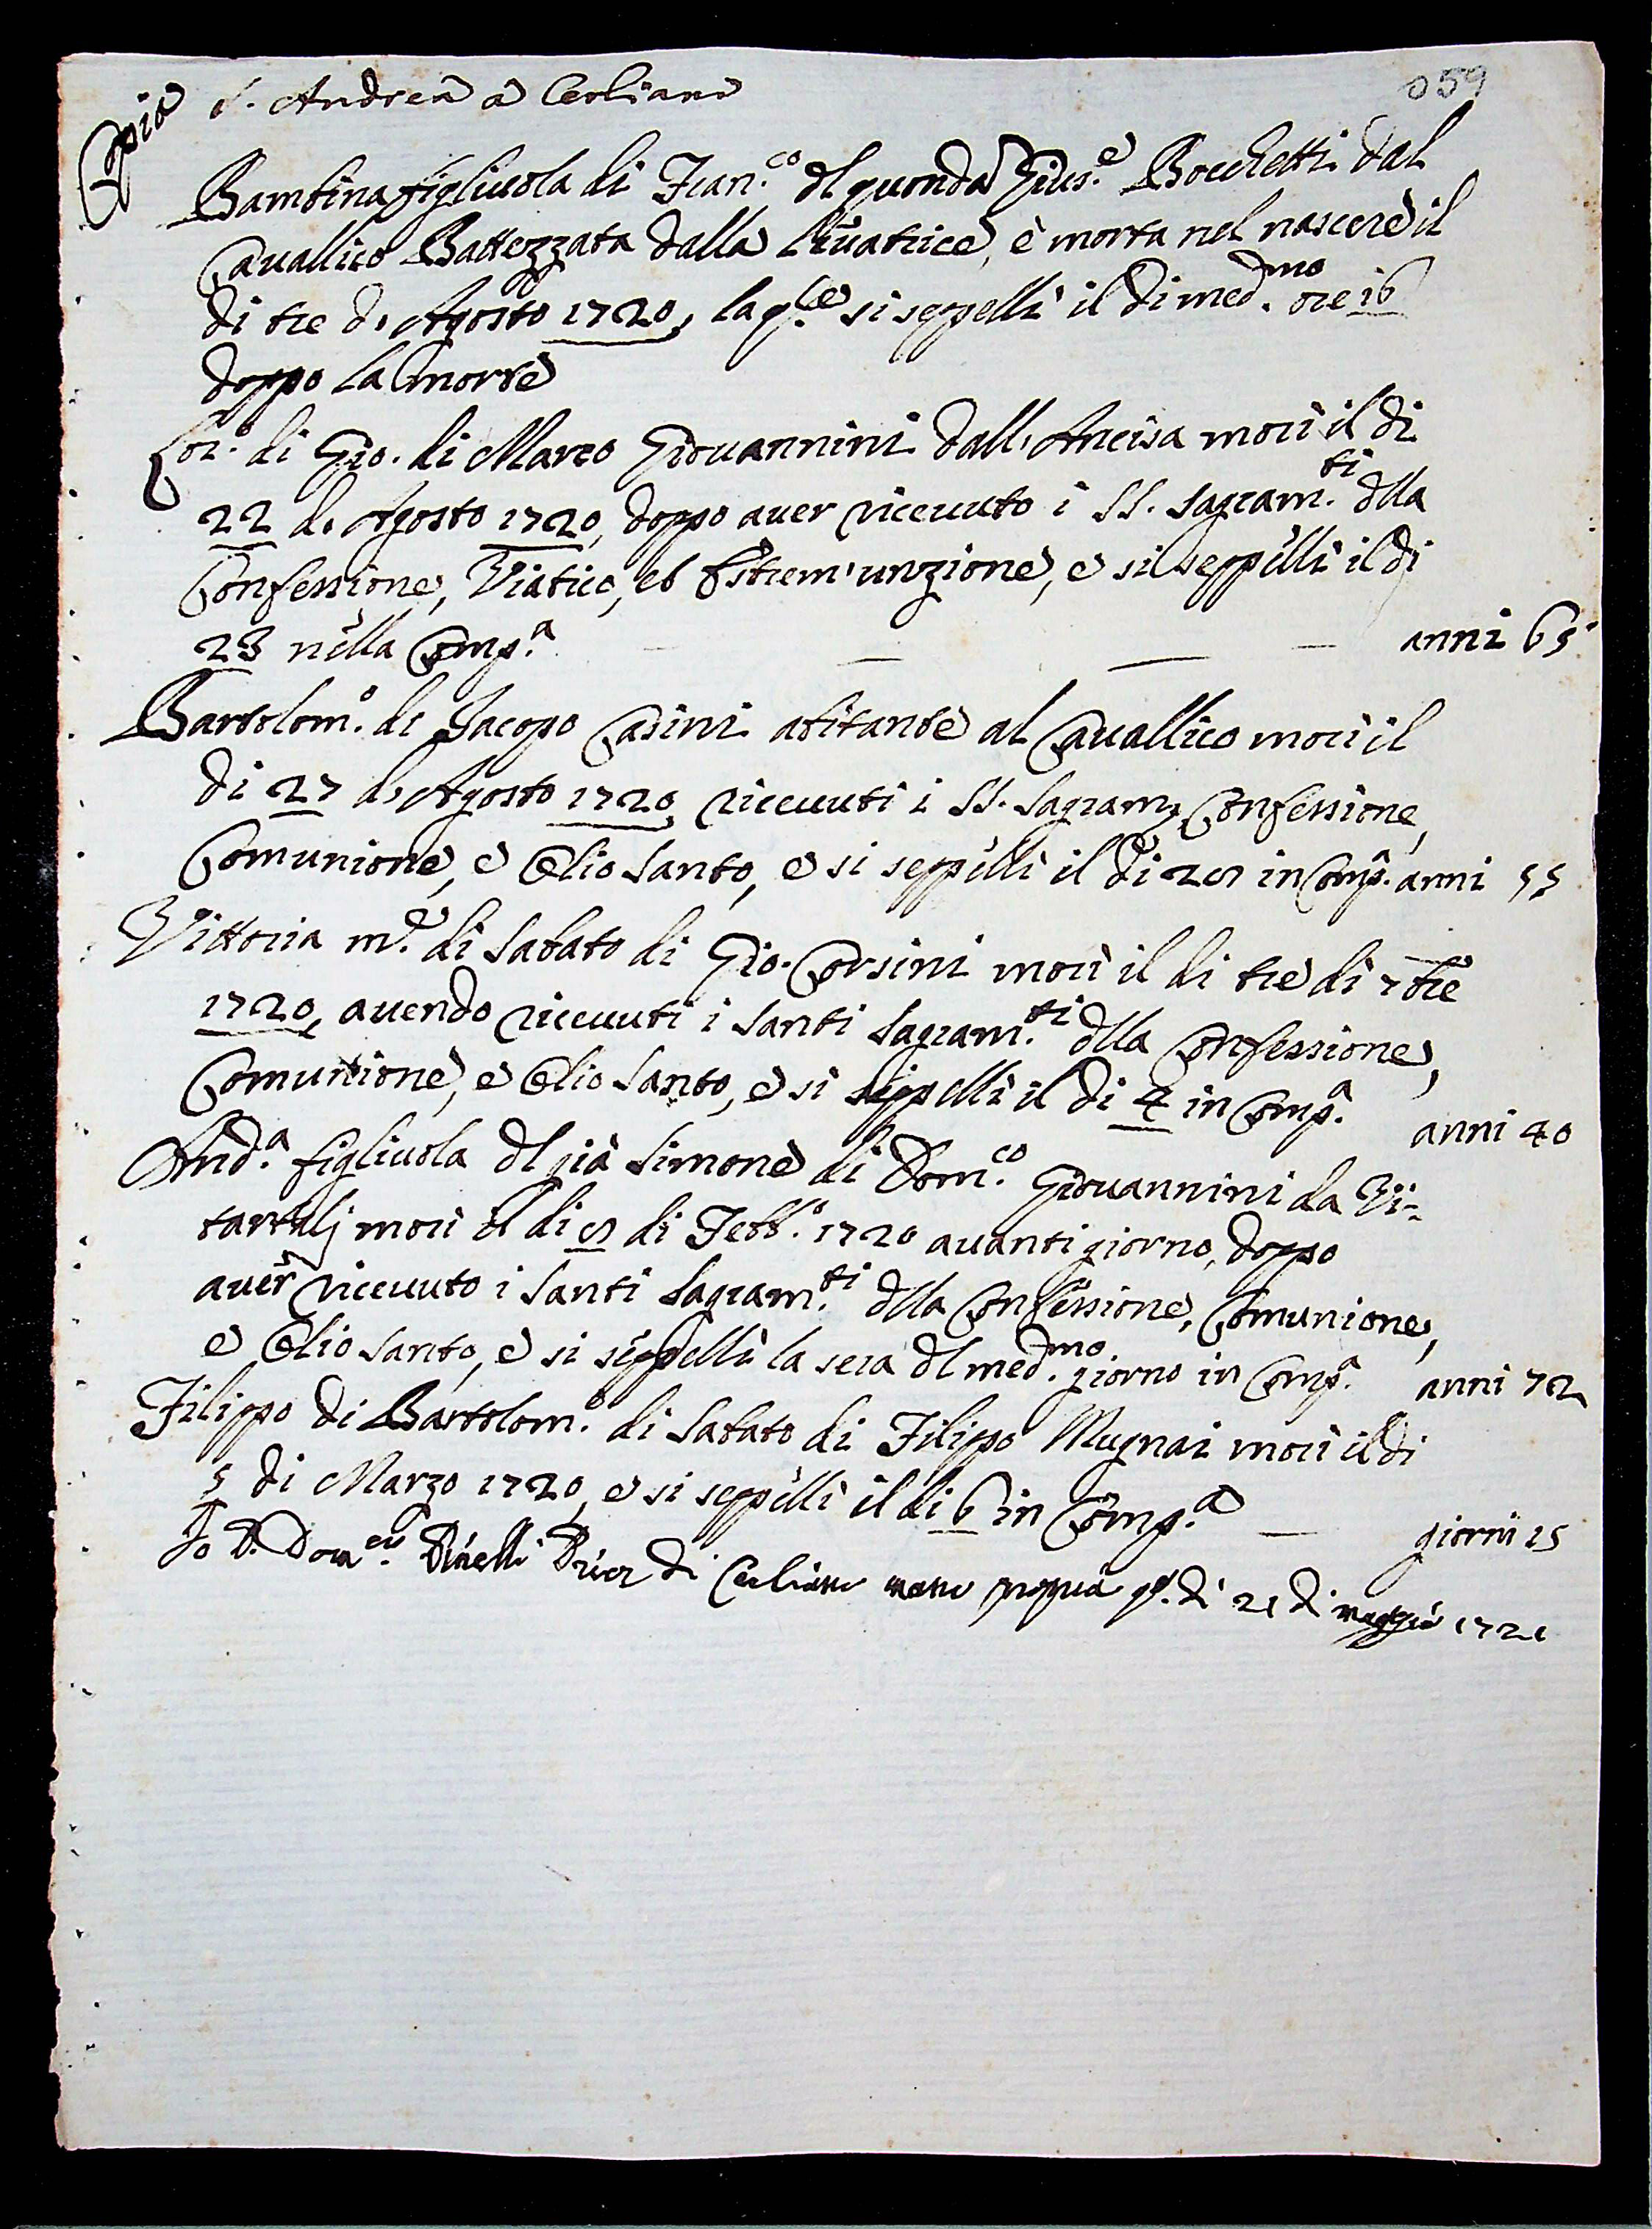 Copia S. Andrea a Cerliano
059
Bambina figliuola di Fran.co dl quonda Gius.e Bocchetti dal
Cavallico Battezzata dalla Levatrice, è morta nel nascere il
di tre d'Agosto 1720, la q.le si seppellì il di med.mo ore 16
doppo la morte
Lor.o di Gio. di Marco Giovannini dall'Ancisa morì il di
22 d'Agosto 1720, doppo aver ricevuto i SS. Sagram.ti dlla
Confessione, Viatico, et Estrem'unzione, e si seppellì il di
23 nella Comp.a anni 65
Bartolom.o di Jacopo Casini abitante al Cavallico morì il
di 27 d'Agosto 1720, ricevuti i SS. Sagram. Confessione,
Comunione, e Olio Santo, e si seppellì il di 28 in Comp.a anni 55
Vittoria m.e di Sabato di Gio. Corsini morì il di tre di 7bre
1720, avendo ricevuti i Santi Sagram.ti dlla Confessione,
Comunione, e Olio Santo, e si seppellì il di 4 in Comp.a anni 40
And.a figliuola dl già Simone di Dom.co Giovannini da Vi-
tartali morì il di 8 di Febb.o 1720 avanti giorno, doppo
aver ricevuto i Santi Sagram.ti dlla Confessione, Comunione,
e Olio Santo, e si seppellì la sera dl med.mo giorno in Comp.a anni 72
Filippo di Bartolom.o di Sabato di Filippo Mugnai morì il di
5 di Marzo 1720, e si seppellì il di 6 in Comp.a giorni 15
Io P. Dom.co Dinelli Prior di Cerliano mano propria q.o di 21 di maggio 1721